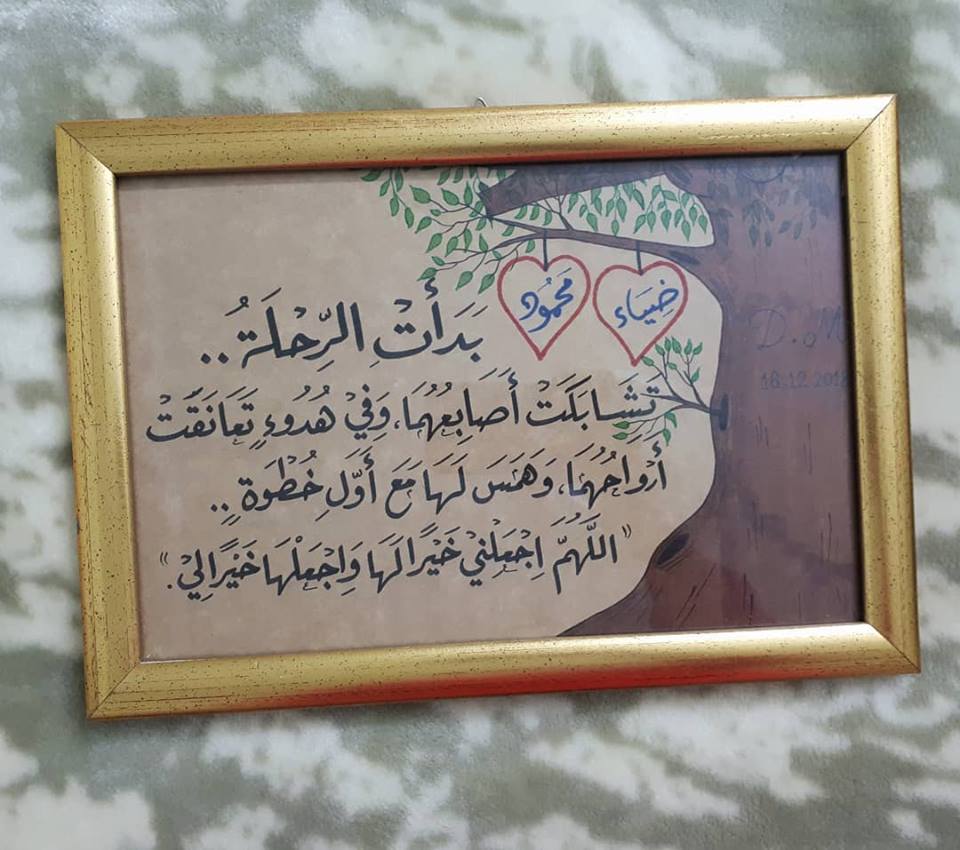 ضِيَاء
مَحمُود
بَدَأَتْ الرِّحلَةُ..
تَشَابَكَتْ أَصَابِعُهُمَا، وَفِيْ هُدُوءٍ تَعَانَقَتْ
أَرْوَاحُهُمَا، وَهَمَسَ لَهَا مَعَ أَوَّلِ خُطْوَةٍ..
"اللَّهُمَّ اِجْعَلْنِيْ خَيْرًا لَهَا وَاجْعَلْهَا خَيْرًا لِيْ."
D.M
16.12.2018